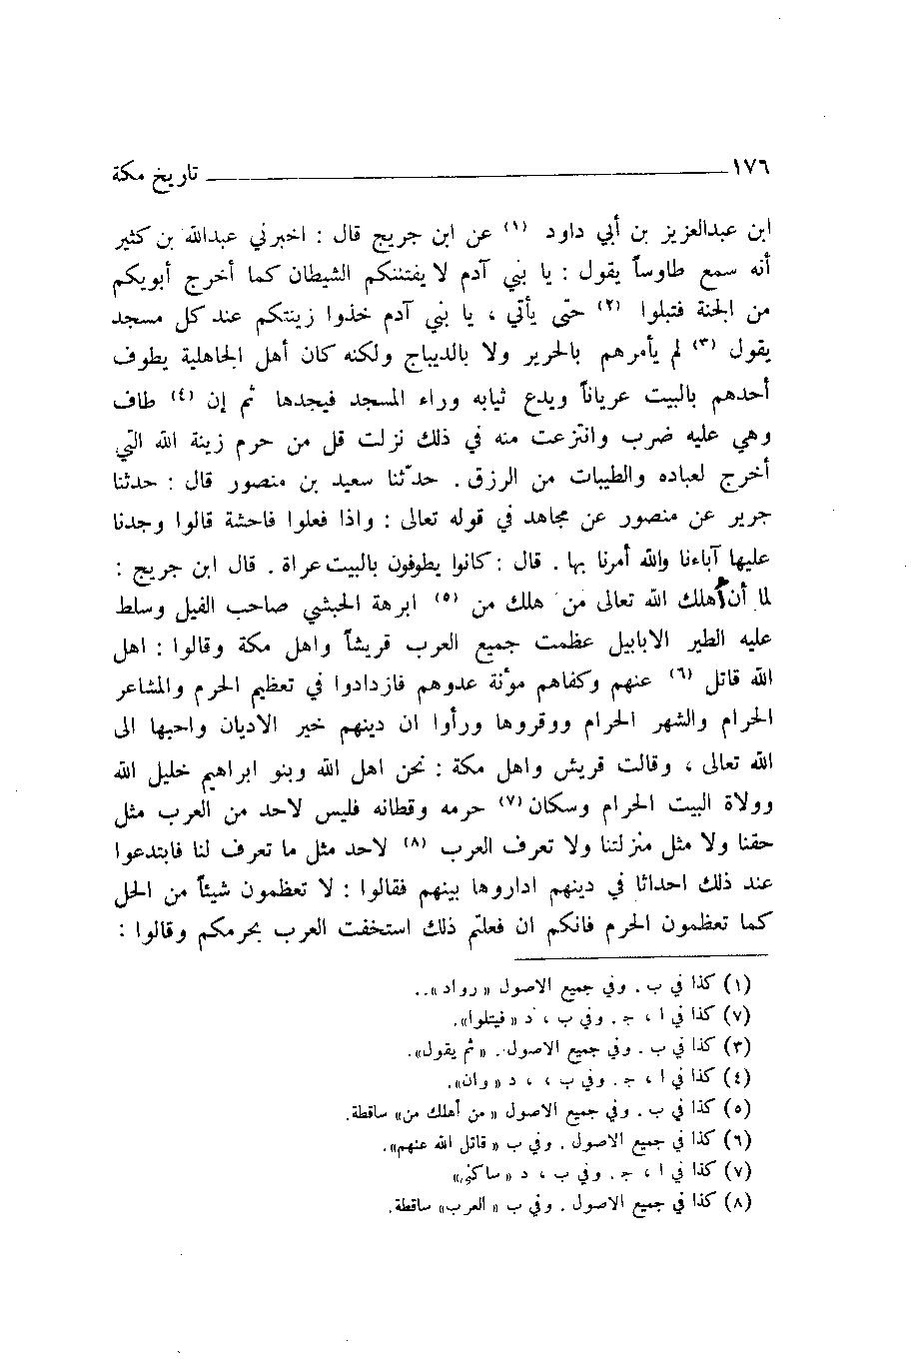 ١٧٦ تاريخ مكة
ابن عبدالعزيز بن أبي داود (١) عن ابن جريج قال : اخبرني عبدالله بن كثير
أنه سمع طاوساً يقول : يا بني آدم لا يفتننكم الشيطان كما أخرج أبويكم
من الجنة فتبلوا (٢) حتى يأتي ، يا بني آدم خذوا زينتكم عند كل مسجد
يقول (٣) لم يأمرهم بالحرير ولا بالديباج ولكنه كان أهل الجاهلية يطوف
أحدهم بالبيت عرياناً ويدع ثيابه وراء المسجد فيجدها ثم إن (٤) طاف
وهي عليه ضرب وانتزعت منه في ذلك نزلت قل من حرم زينة الله التي
أخرج لعباده والطيبات من الرزق . حدّثنا سعيد بن منصور قال : حدثنا
جرير عن منصور عن مجاهد في قوله تعالى : واذا فعلوا فاحشة قالوا وجدنا
عليها آباءنا والله أمرنا بها . قال : كانوا يطوفون بالبيت عراة . قال ابن جريج :
لما أن أهلك الله تعالى من هلك من (٥) ابرهة الحبشي صاحب الفيل وسلط
عليه الطير الابابيل عظمت جميع العرب قريشاً واهل مكة وقالوا : اهل
الله قاتل (٦) عنهم وكفاهم مؤنة عدوهم فازدادوا في تعظيم الحرم والمشاعر
الحرام والشهر الحرام ووقروها ورأوا ان دينهم خير الاديان واحبها الى
الله تعالى ، وقالت قريش واهل مكة : نحن اهل الله وبنو ابراهيم خليل الله
وولاة البيت الحرام وسكان (٧) حرمه وقطانه فليس لاحد من العرب مثل
حقنا ولا مثل منزلتنا ولا تعرف العرب (٨) لاحد مثل ما تعرف لنا فابتدعوا
عند ذلك احداثا في دينهم اداروها بينهم فقالوا : لا تعظمون شيئاً من الحل
كما تعظمون الحرم فانكم ان فعلتم ذلك استخفت العرب بحرمكم وقالوا :
(١) كذا في ب . وفي جميع الاصول « رواد »..
(٧) كذا في ا ، ج . وفي ب ، د « فيتلوا».
(٣) كذا في ب . وفي جميع الاصول . « ثم يقول».
(٤) كذا في ا ، ج . وفي ب ، ، د « وان».
(٥) كذا في ب . وفي جميع الاصول « من أهلك من» ساقطة.
(٦) كذا في جميع الاصول . وفي ب « قاتل الله عنهم».
(٧) كذا في ا ، ج . وفي ب ، د « ساكني»
(٨) كذا في جميع الاصول . وفي ب « العرب» ساقطة.